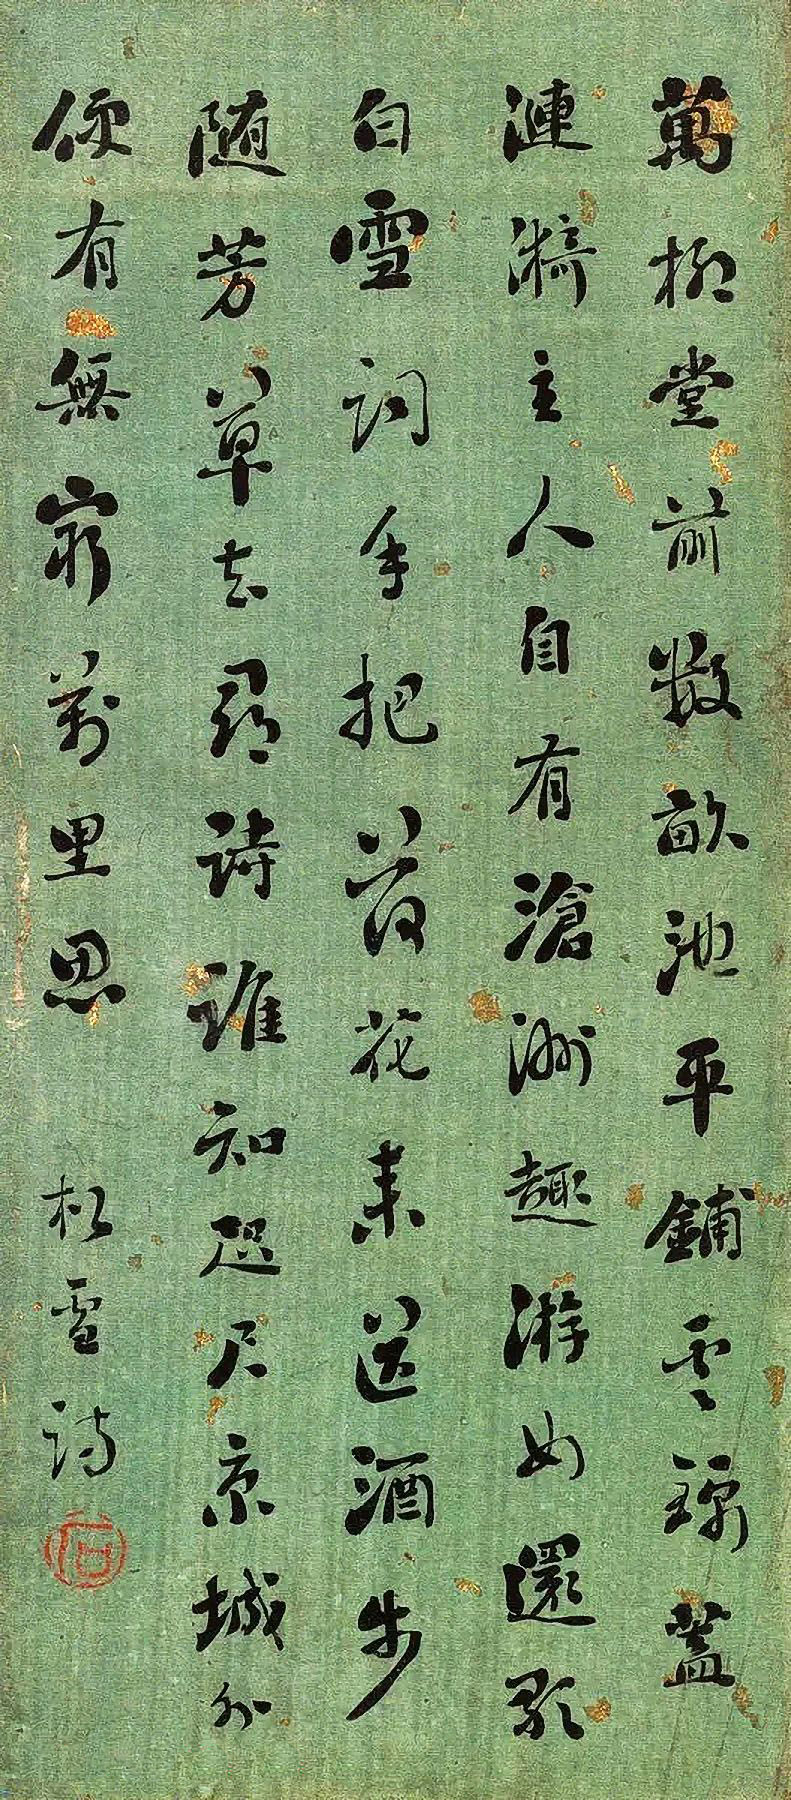 萬柳堂前數畝池平鋪雲錦蓋
漣漪主人自有滄洲趣游女還歌
白雪詞手把荷花来送酒步
随芳草去尋詩誰知咫尺京城外
便有無窮萬里思 松雪詩